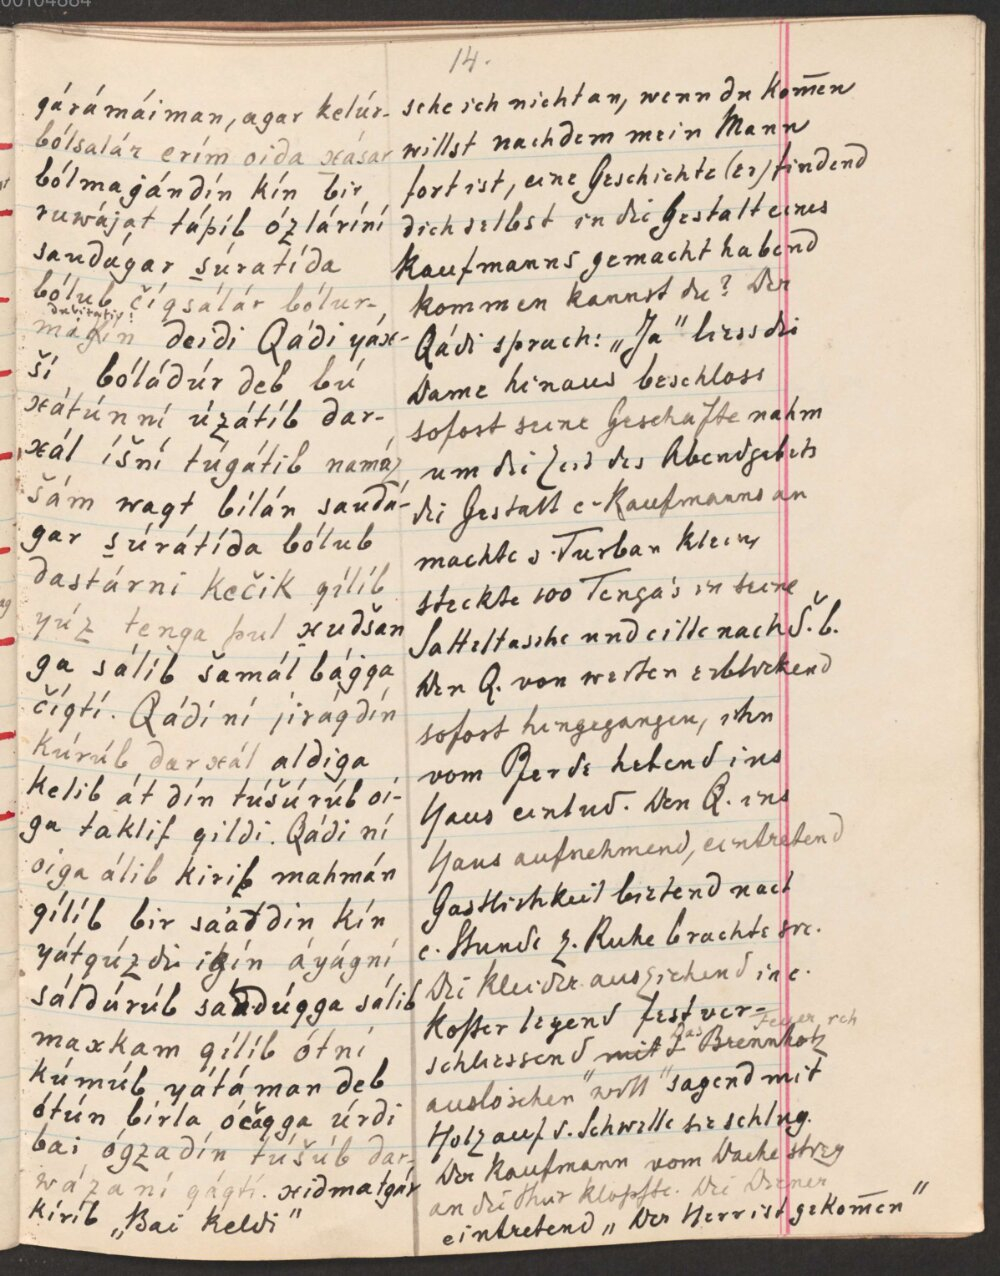 14.
qárámáiman, agar kelúr-
bólsalár erím oida xásar
bólmagándín kín bir
ruwájat tápíb ózláríní
saudágar súratída
bólub čígsálár bólur-
deidi Qádi yáx-
ší, bóládúr deb bú
xátúnní úzátíb dar-
xál íšní túgátib namáz
šám waqt bílán saudá-
gar súrátída bólub
dastárni kečik qílíb
yúz tenga pul xudšan
ga sálíb šamál bágga
čígtí. Qádí ní jiraqdín
kúrúb darxál aldiga
kelib át dín túšúrúb oi-
ga taklif qildi. Qádi ní
oiga álib kirib mahmán
qílíb bir sáátdin kín
yátqúzdi áyágní
sáldúrúb sandúqga sálib
maxkam qílíb ótní
kúmúb yátáman deb
ótún bírla óčágga úrdi
bai ógzadín túšúb dar-
wázaní qáqtí. xidmatgár
kiríb „Bai keldi"
sehe ich nicht an, wenn du kom̄en
willst nachdem mein Mann
fort ist, eine Geschichte (er)findend
dich selbst in die Gestalt eines
Kaufmanns gemacht habend
kommen kannst du? Der
Qádi sprach: „Ja" liess die
Dame hinaus beschloss
sofort seine Geschäfte nahm
um die Zeit des Abendgebets
die Gestalt e. Kaufmanns an
machte s. Turban klein
steckte 100 Tenga's in seine
Satteltasche und eilte nach Š. b.
Den Q. von weiten erblickend
sofort hingegangen, ihn
vom Pferde hebend ins
Haus einlud. Den Q. ins
Haus aufnehmend, eintretend
Gastlichkeit bietend nach
e. Stunde z. Ruhe brachte sie.
Die Kleider ausziehend in e.
Koffer legend fest ver-
schliessend mit d Brennholz
das Feuer ich
auslöschen "will" sagend mit
Holz auf d. Schwelle sie schlug.
Der Kaufmann vom Dache stieg
an die Thür klopfte. Die Diener
eintretend „Der Herr ist gekom̄en"